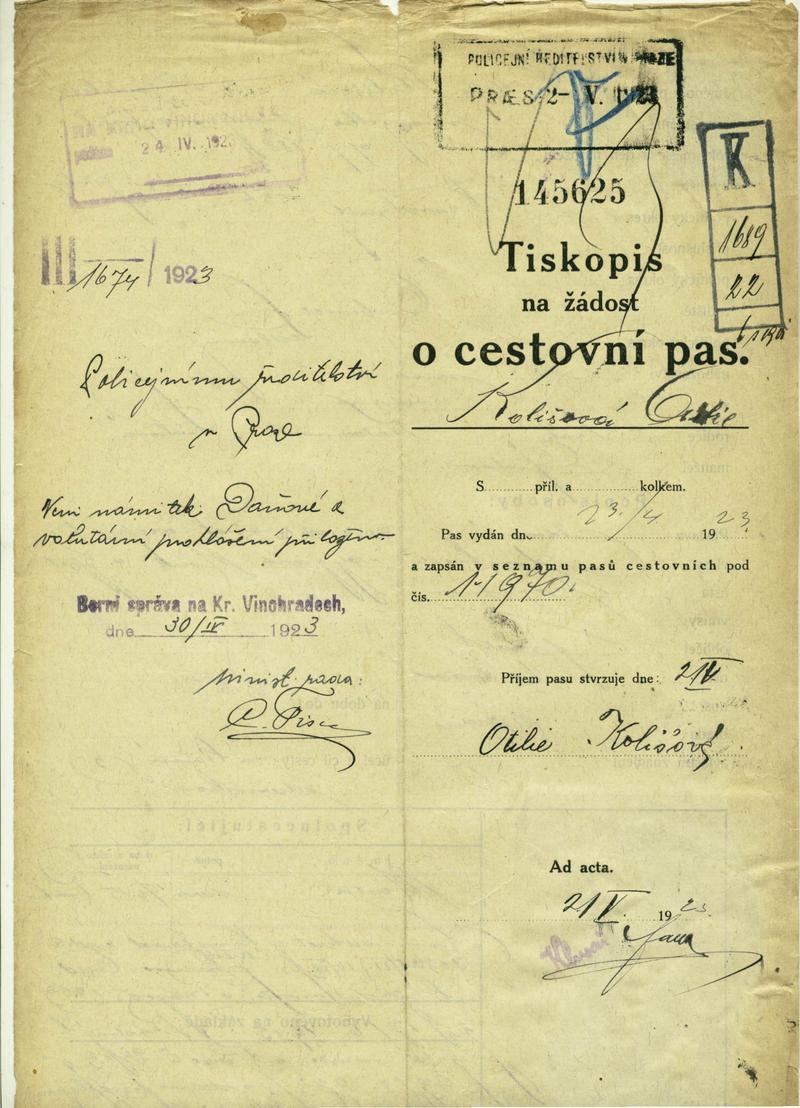 24 IV. 192
III 1674 / 1923
Policejnímu ředitelství
v Praze
Není námitek. Daňové a
valutární prohlášení přiloženo.
Berní správa na Kr. Vinohradech,
dne 30/IV 1923
Minist. rada:
POLICEJNÍ ŘEDITELSTVÍ V PRAZE
PRÆS. 2- V. 1923
145625
K
1689
22
Tiskopis
na žádost
o cestovní pas.
Kolišová Otilie
S příl. a kolkem.
Pas vydán dne 23/4 1923
a zapsán v seznamu pasů cestovních pod
čís.
Příjem pasu stvrzuje dne: 2/V
Otilie Kolišová
Ad acta.
21 V. 1923